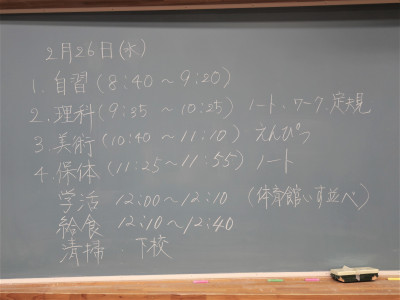 2月26日(水)
1.自習(8:40〜9:20)
2.理科(9:35〜10:25) ノート、ワーク、定規
3.美術(10:40〜11:10) えんぴつ
4.保体(11:25〜11:55) ノート
学活 12:00〜12:10 (体育館いす並べ)
給食 12:10〜12:40
清掃 下校